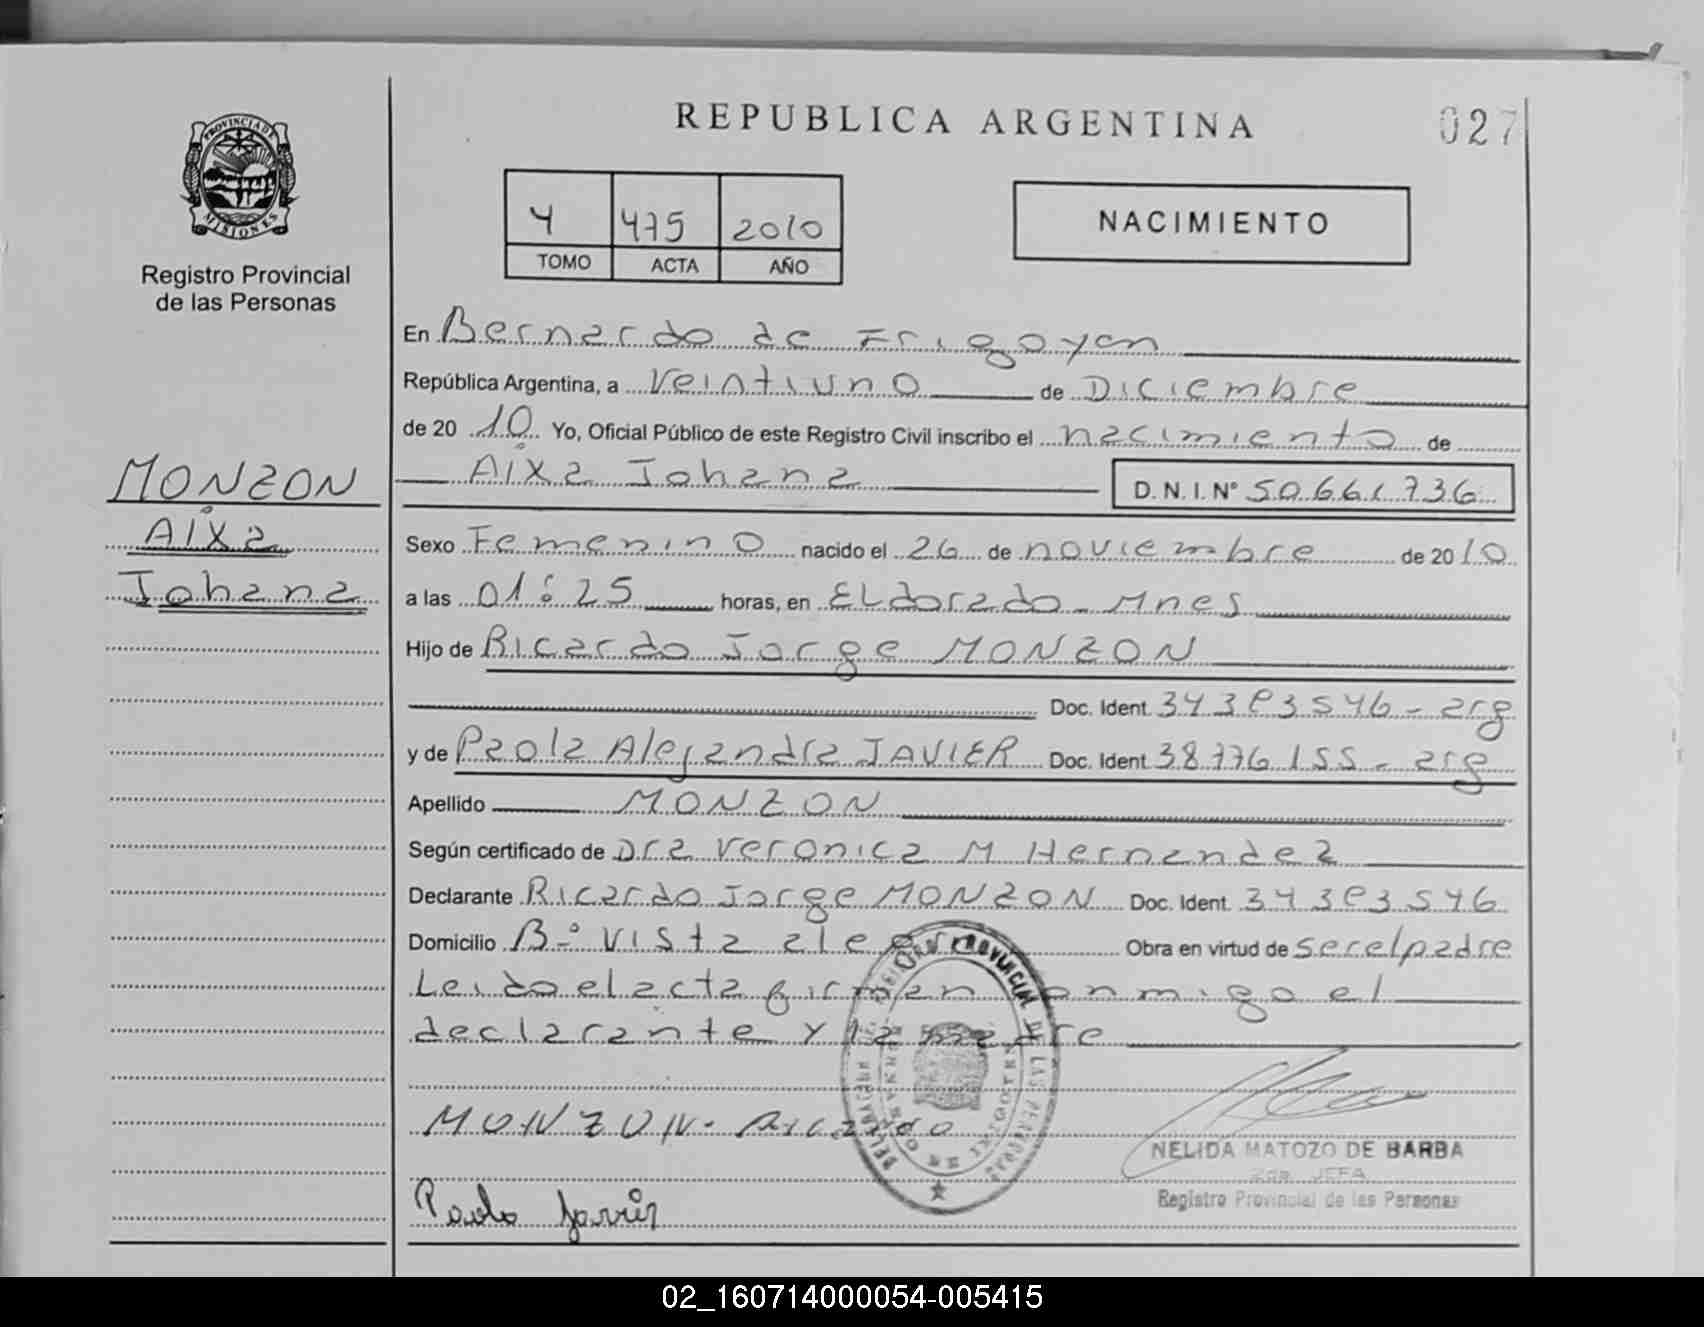 REPUBLICA ARGENTINA
027
PROVINCIA DE MISIONES
Registro Provincial
de las Personas
4 475 2010
TOMO ACTA AÑO
NACIMIENTO
En Bernardo de Irigoyen
República Argentina, a Veintiuno de Diciembre
de 20 10 Yo, Oficial Público de este Registro Civil inscribo el nacimiento de
Aixa Johana D.N.I. Nº 50.661.736
MONZON
Aixa
Johana
Sexo Femenino nacido el 26 de noviembre de 2010
a las 01:25 horas, en ELdorado - Mnes
Hijo de Ricardo Jorge MONZON
Doc. Ident. - arg
y de Paola Alejandra JAVIER Doc. Ident. 38776155 - arg
Apellido MONZON
Según certificado de Dra Veronica M Hernandez
Declarante Ricardo Jorge MONZON Doc. Ident.
Domicilio Bº Vista alegre Obra en virtud de ser el padre
Leido el acta firman conmigo el
declarante y la madre
MONZON - Ricardo
Paola Javier
DELEGACION REGISTRO PROVINCIAL DE LAS PERSONAS
BERNARDO DE IRIGOYEN
NELIDA MATOZO DE BARBA
2da. JEFA
Registro Provincial de las Personas
02_160714000054-005415